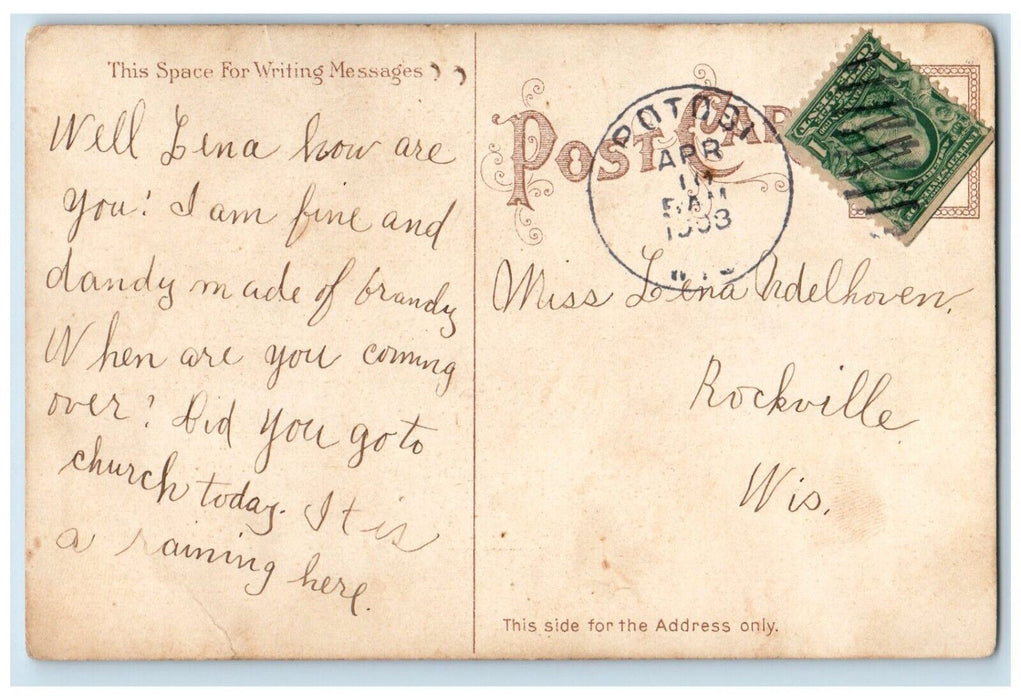 This Space For Writing Messages
Well Lena how are
you? I am fine and
dandy made of brandy
When are you coming
over? Did you go to
church today. It is
a raining here.
POST CARD
POTOSI
APR
AM
WIS
1
1
Miss Lena Udelhoven.
Rockville
Wis.
This side for the Address only.